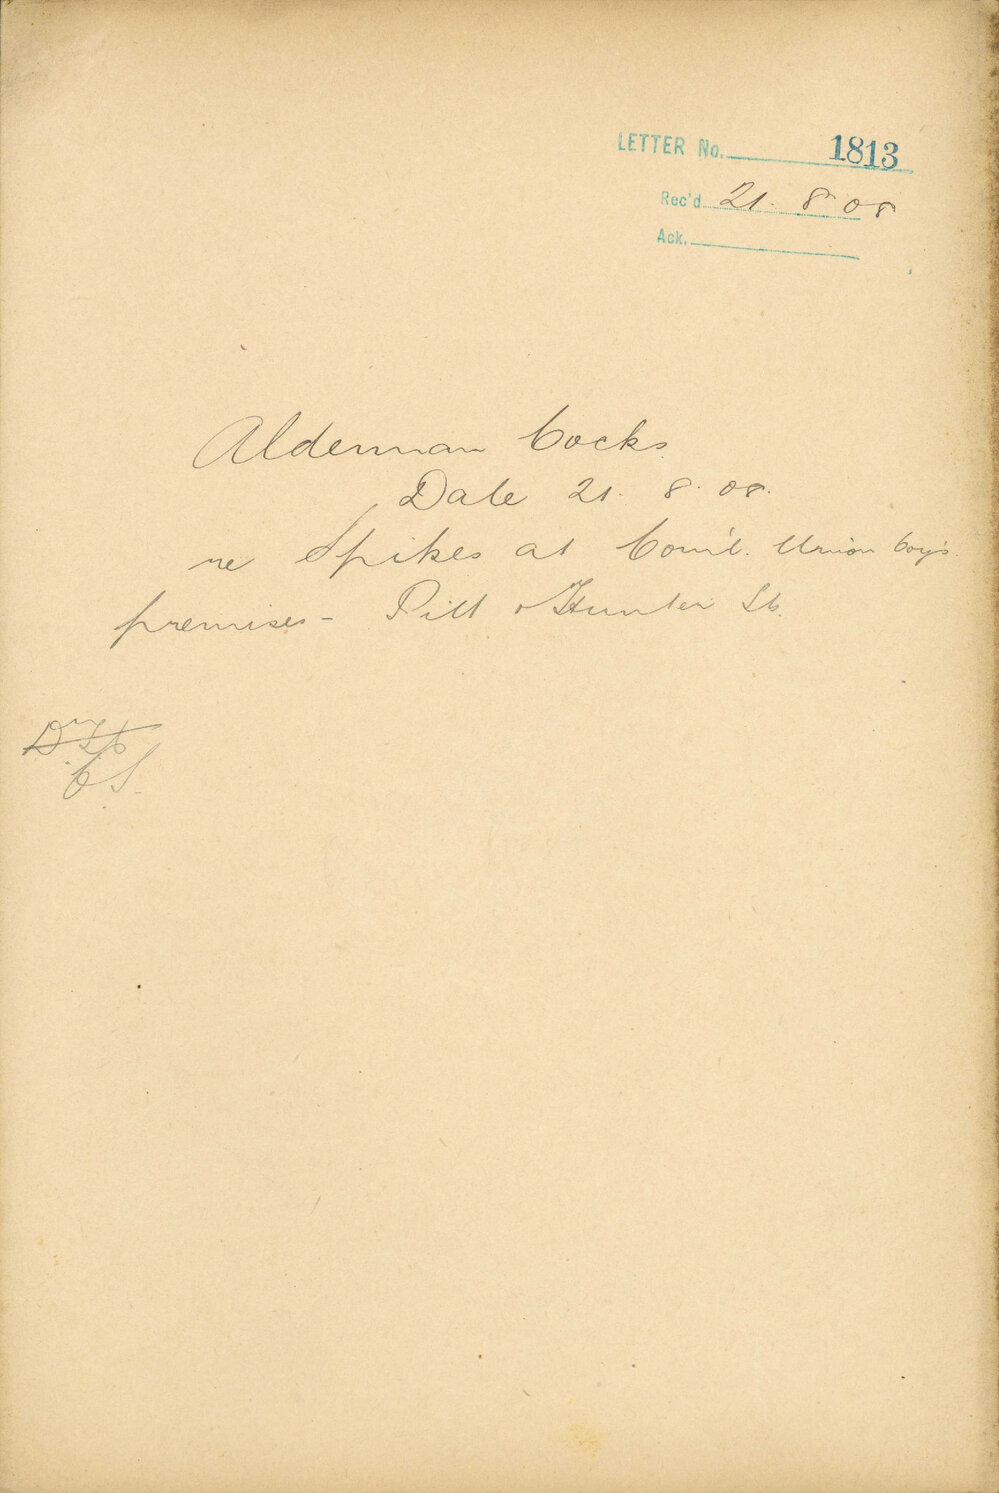 LETTER No. 1813
Rec'd 21. 8 08
Ack.
Alderman Cocks.
Date 21. 8. 08.
re Spikes at Com'l. Union Coy's.
premises - Pitt & Hunter Sts.
C S.